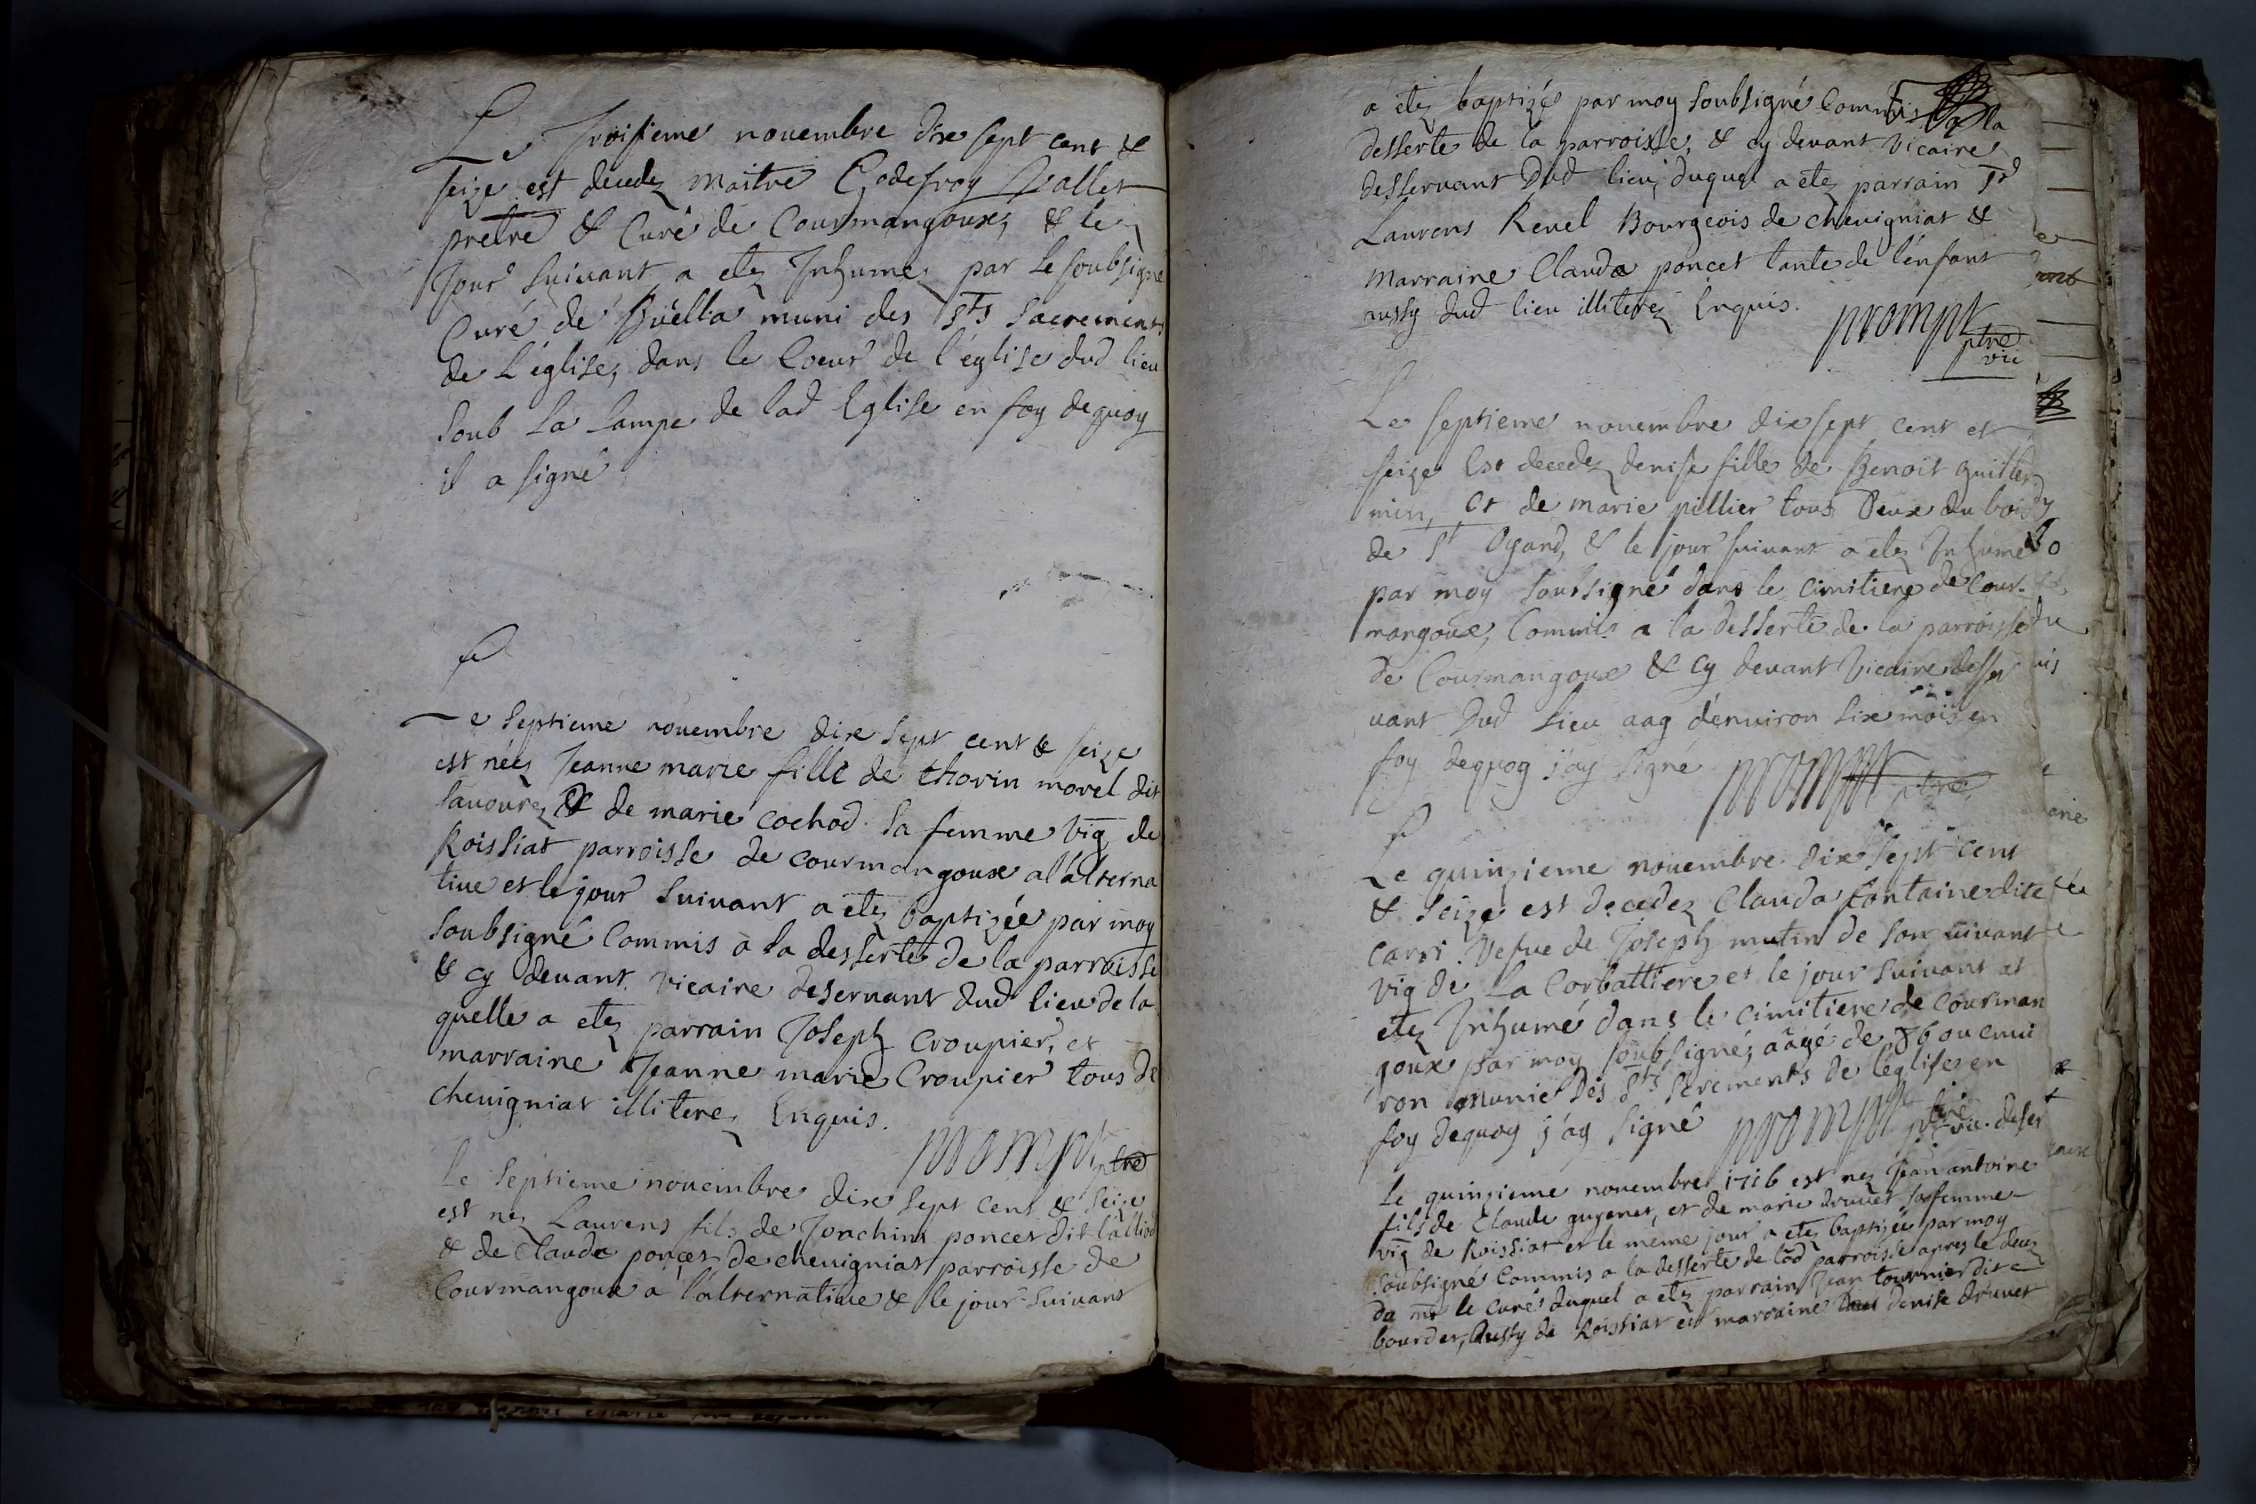 Le Troisieme novembre dix sept cent &
seize est decedez maitre Godefroy Vallet
pretre & Curé de Courmangoux, & le
Jour suivant a etez Inhumé par le soubsigné
Curé de Büella muni des Sts Sacrements
de L'église, dans le Coeur de l'église dud lieu
soub La Lampe de lad Eglise en foy dequoy
il a signé
Le septieme novembre dix sept cent & seize
est néez Jeanne marie fille de thorin morel dit
savourez & de marie cochod sa femme vig de
Roissiat parroisse de courmangoux a l'alterna
tive et le jour suivant a etez baptizée par moy
soubsigné Commis a la desserte de la parroisse
& cy devant vicaire deservant dud lieu de la
quelle a etez parrain Joseph Croupier, et
marraine Jeanne marie Croupier tous de
chevigniat illiterez Enquis.
prompt ptre
Le septieme novembre dix sept cent & seize
est nez Laurens fils de Joachim poncet dit
& de Clauda poncet de chevigniat parroisse de
Courmangoux a l'alternative & le jour suivant
a etez baptizé par moy soubsigné Commis a la
desserte de la parroisse, & cy devant vicaire
desservant dud lieu, duquel a etez parrain Sr
Laurens Revel Bourgeois de chevigniat &
marraine Clauda poncet tante de l'enfant
aussy dud lieu illiterez Enquis.
prompt ptre
vic
Le septieme novembre dix sept cent et
seize Est decedez denise fille de Benoit guiller
min, et de marie pillier tous deux du bois
de St Oyand, & le jour suivant a etez Inhumé
par moy soussigné dans le cimitiere de Cour-
mangoux, Commis a la desserte de la parroisse
de Courmangoux & cy devant vicaire desser
vant dud lieu aag d'environ six mois en
foy dequoy j'ay signé prompt ptre
Le quinzieme novembre dix sept cent
& seize est decedez Clauda fontaine dite
carri vefve de Joseph mutin de son vivant
vig de La Corbattiere et le jour suivant at
etez Inhumé dans le cimitiere de courman
goux par moy soubsigné, aâgé de 76 ou envi
ron munie des Sts Serements de l'église en
foy dequoy j'ay signé prompt ptre vic. deser
Le quinzieme novembre 1716 est nez Jean antoine
fils de Claude guyenet, et de marie druvet sa femme
vig de Roissiat et le meme jour a etez baptizée par moy
soubsigné Commis a la desserte de lad parroisse apres le decez
de mr le Curé duquel a etez parrain Jean tournier dit
bourdet, aussy de Roissiat et marraine denise druvet